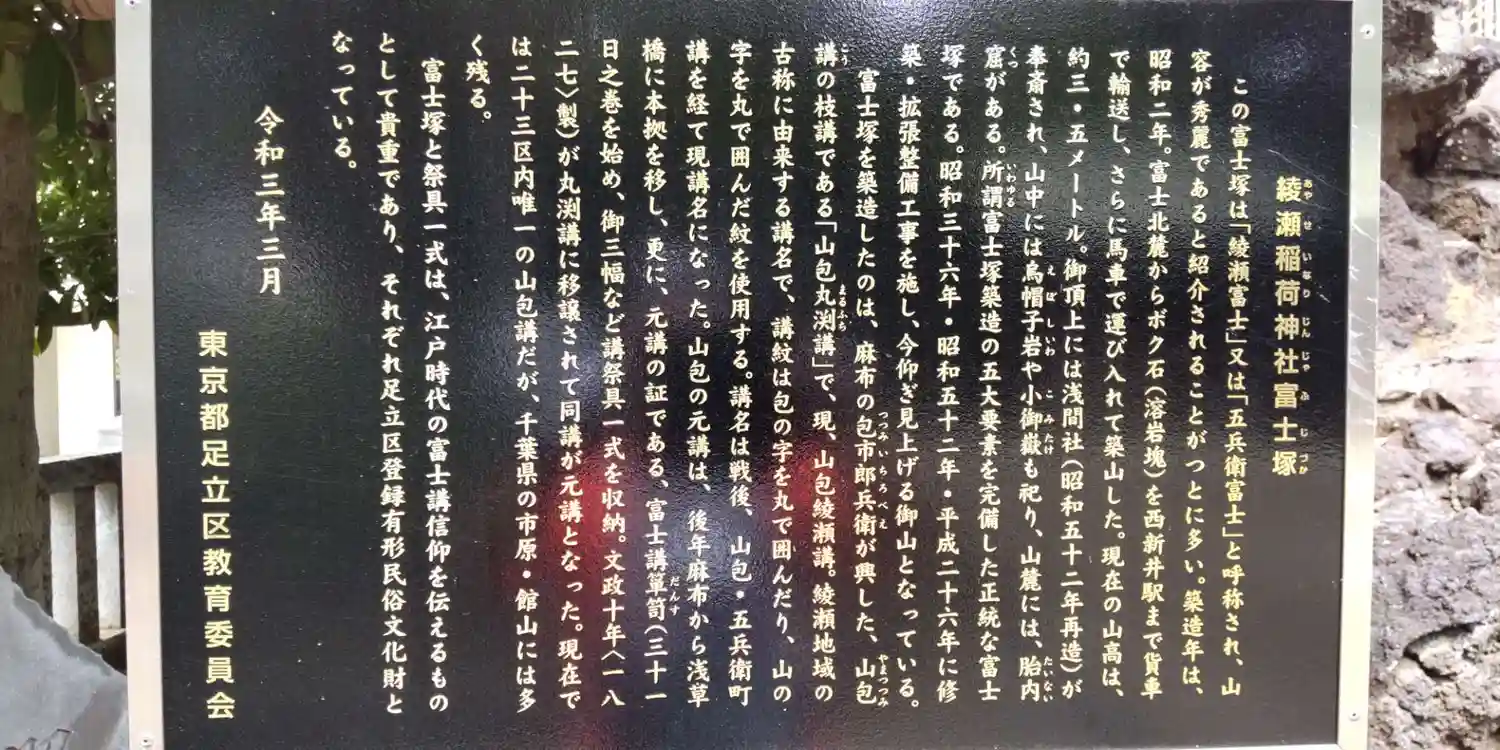 綾瀬稲荷神社富士塚
この富士塚は「綾瀬富士」又は「五兵衛富士」と呼称され、山
容が秀麗であると紹介されることがつとに多い。築造年は、
昭和二年。富士北麓からボク石（溶岩塊）を西新井駅まで貨車
で輸送し、さらに馬車で運び入れて築山した。現在の山高は、
約三・五メートル。御頂上には浅間社（昭和五十二年再造）が
奉斎され、山中には烏帽子岩や小御嶽も祀り、山麓には、胎内
窟がある。所謂富士塚築造の五大要素を完備した正統な富士
塚である。昭和三十六年・昭和五十二年・平成二十六年に修
築・拡張整備工事を施し、今仰ぎ見上げる御山となっている。
富士塚を築造したのは、麻布の包市郎兵衛が興した、山包
講の枝講である「山包丸渕講」で、現、山包綾瀬講。綾瀬地域の
古称に由来する講名で、講紋は包の字を丸で囲んだり、山の
字を丸で囲んだ紋を使用する。講名は戦後、山包・五兵衛町
講を経て現講名になった。山包の元講は、後年麻布から浅草
橋に本拠を移し、更に、元講の証である、富士講簞笥（三十一
日之巻を始め、御三幅など講祭具一式を収納。文政十年〈一八
二七〉製）が丸渕講に移譲されて同講が元講となった。現在で
は二十三区内唯一の山包講だが、千葉県の市原・館山には多
く残る。
富士塚と祭具一式は、江戸時代の富士講信仰を伝えるもの
として貴重であり、それぞれ足立区登録有形民俗文化財と
なっている。
令和三年三月
東京都足立区教育委員会